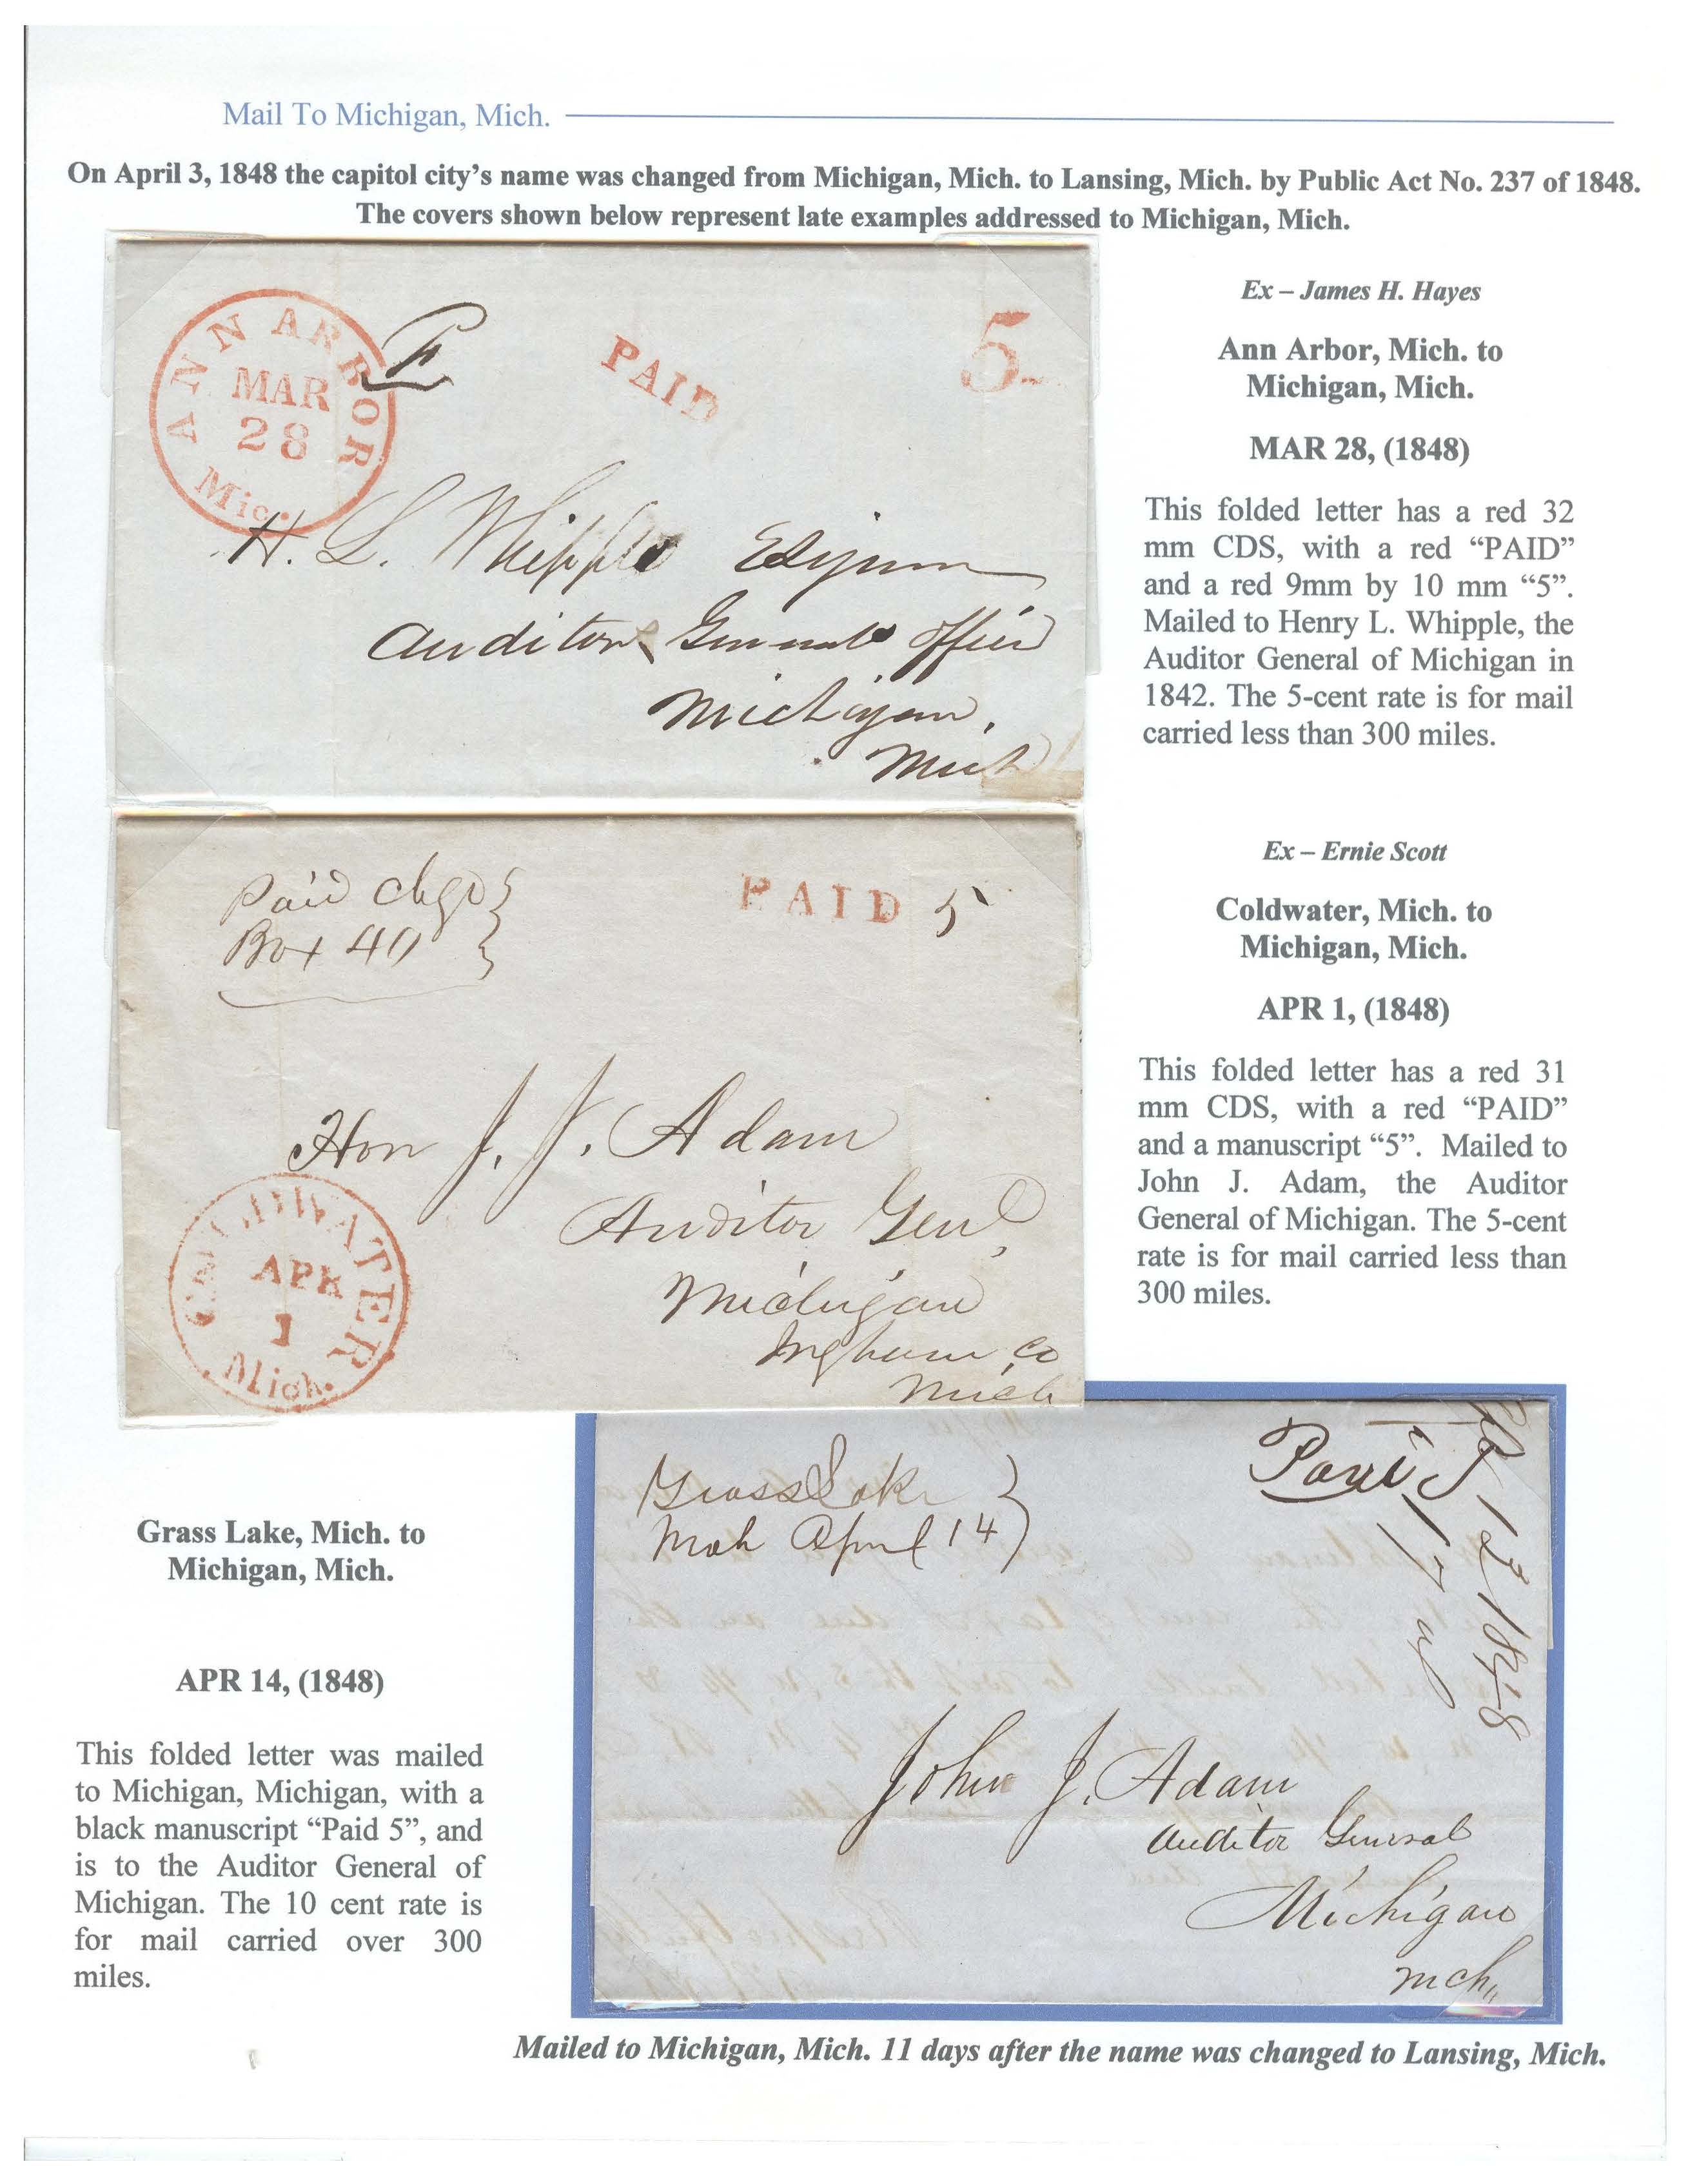 Mail To Michigan, Mich.
On April 3, 1848 the capitol city's name was changed from Michigan, Mich. to Lansing, Mich. by Public Act No. 237 of 1848.
The covers shown below represent late examples addressed to Michigan, Mich.
ANN ARBOR
MAR
28
Mic.
PAID
5
H. L. Whipple Esquire
Auditor Generals Office
Michigan,
Mich
Ex – James H. Hayes
Ann Arbor, Mich. to
Michigan, Mich.
MAR 28, (1848)
This folded letter has a red 32
mm CDS, with a red “PAID”
and a red 9mm by 10 mm “5”.
Mailed to Henry L. Whipple, the
Auditor General of Michigan in
1842. The 5-cent rate is for mail
carried less than 300 miles.
Paid chgd
Box 40
PAID 5
Hon J. J. Adam
Auditor Genl,
Michigan
Ingham Co
Mich
COLDWATER
APR
1
Mich.
Ex – Ernie Scott
Coldwater, Mich. to
Michigan, Mich.
APR 1, (1848)
This folded letter has a red 31
mm CDS, with a red “PAID”
and a manuscript “5”. Mailed to
John J. Adam, the Auditor
General of Michigan. The 5-cent
rate is for mail carried less than
300 miles.
Grass Lake, Mich. to
Michigan, Mich.
APR 14, (1848)
This folded letter was mailed
to Michigan, Michigan, with a
black manuscript “Paid 5”, and
is to the Auditor General of
Michigan. The 10 cent rate is
for mail carried over 300
miles.
Grass Lake
Mch April 14
Paid 5
12 1848
John J. Adam
Auditor General
Michigan
Mch
Mailed to Michigan, Mich. 11 days after the name was changed to Lansing, Mich.